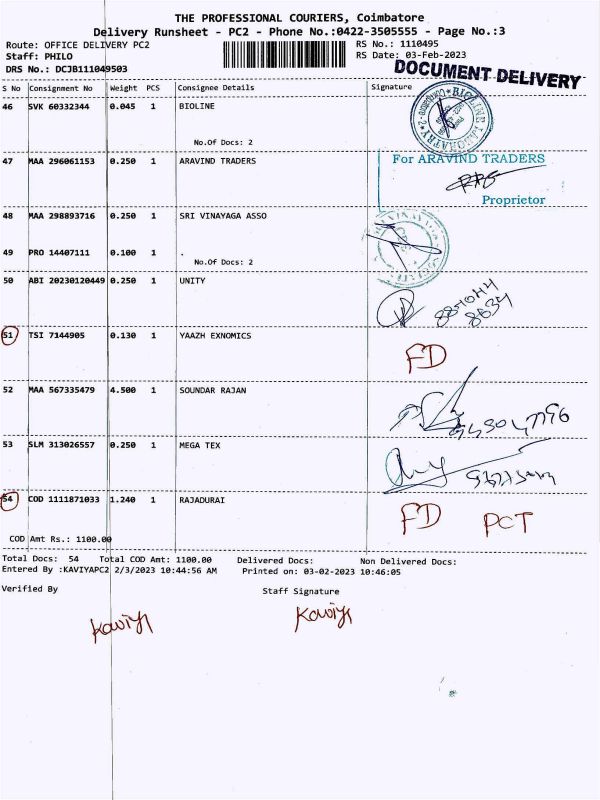 THE PROFESSIONAL COURIERS, Coimbatore
Delivery Runsheet - PC2 - Phone No.:0422-3505555 - Page No.:3
Route: OFFICE DELIVERY PC2
RS No.: 1110495
Staff: PHILO
RS Date: 03-Feb-2023
DRS No.: DCJB111049503
DOCUMENT DELIVERY
S No Consignment No Weight PCS Consignee Details Signature
46 SVK 60332344 0.045 1 BIOLINE
No.Of Docs: 2
BIOLINE LABORATORY
47 MAA 296061153 0.250 1 ARAVIND TRADERS
For ARAVIND TRADERS
Proprietor
48 MAA 298893716 0.250 1 SRI VINAYAGA ASSO
49 PRO 14407111 0.100 1 .
No.Of Docs: 2
50 ABI 20230120449 0.250 1 UNITY
51 TSI 7144905 0.130 1 YAAZH EXNOMICS
FD
52 MAA 567335479 4.500 1 SOUNDAR RAJAN
53 SLM 313026557 0.250 1 MEGA TEX
54 COD 1111871033 1.240 1 RAJADURAI
FD PCT
COD Amt Rs.: 1100.00
Total Docs: 54 Total COD Amt: 1100.00 Delivered Docs: Non Delivered Docs:
Entered By :KAVIYAPC2 2/3/2023 10:44:56 AM Printed on: 03-02-2023 10:46:05
Verified By Staff Signature
Kaviya Kaviya